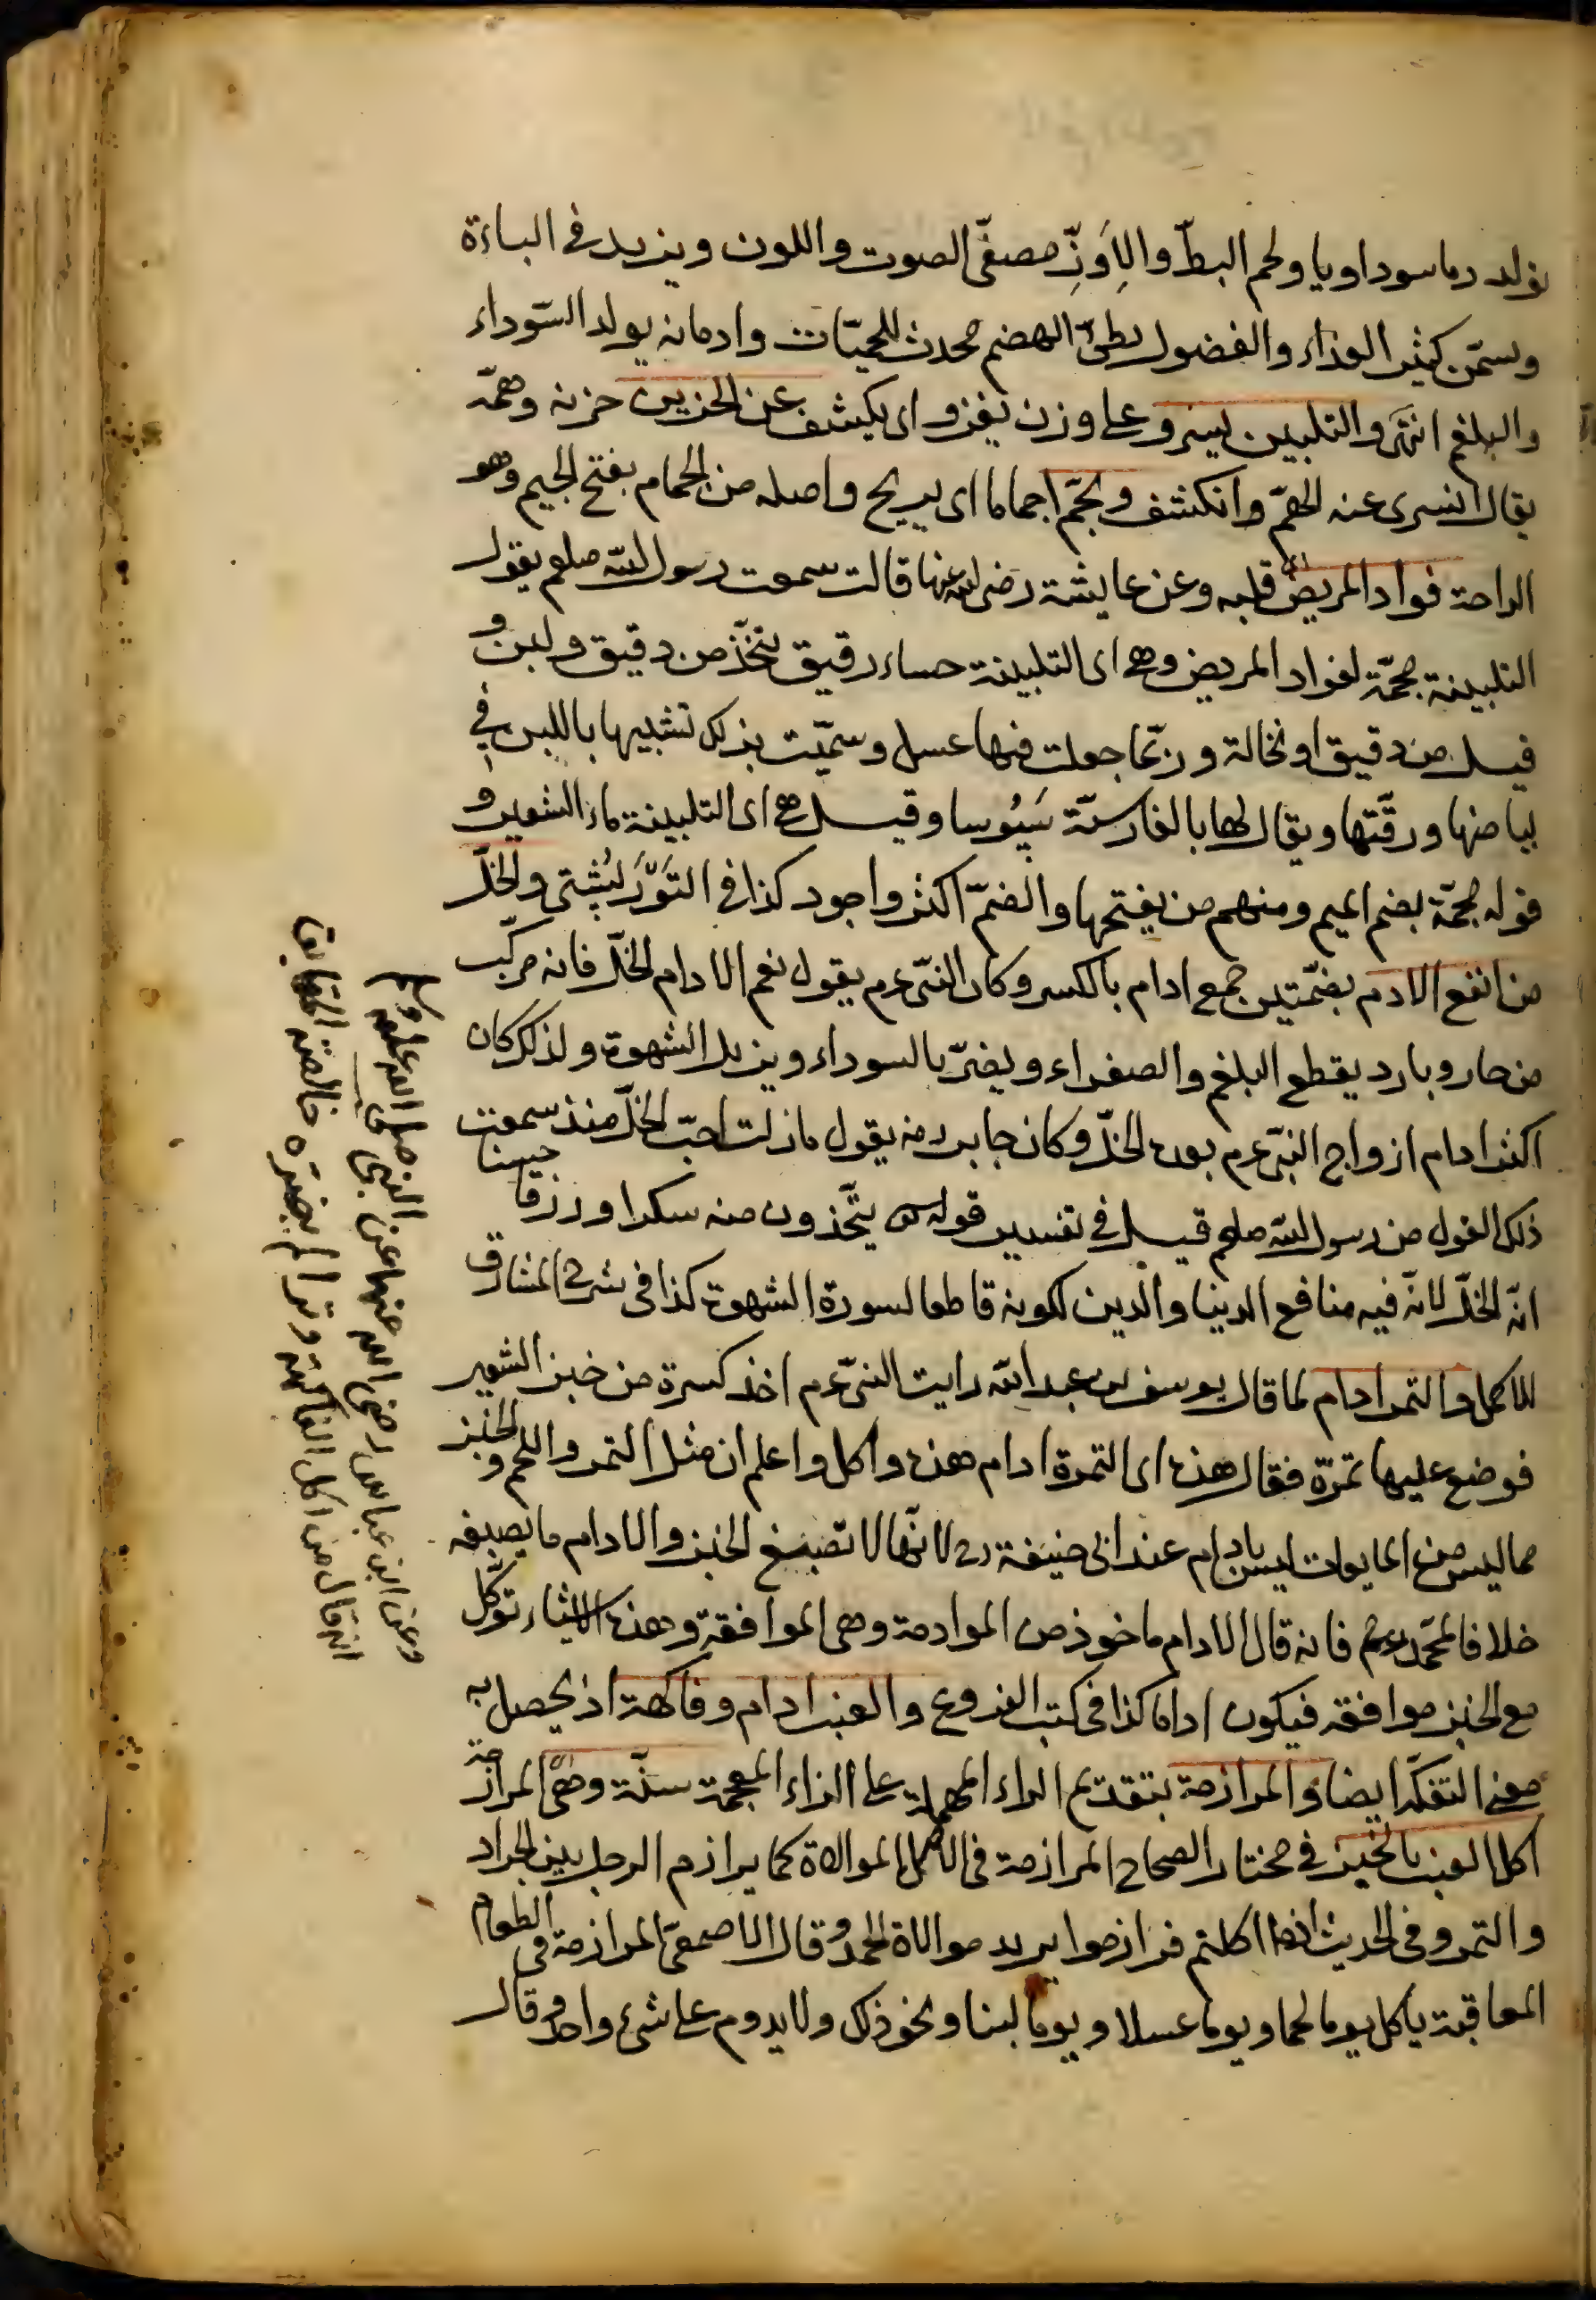 يولد دما سوداويا ولحم البطّ والاِوَزِّ مصفّى الصوت واللون ويزيد فى الباءة
ويسمّن كثير الغذاء والفضول بطئ الهضم محدث للحميّات وادمانه يولد السّوداء
والبلغم انتهى والتلبين يسرو على وزن يغزو اى يكشف عن الحزين حزنه وهمّه
يقال انسرى عنه الهمّ وانكشف ويجمّ اجماما اى يريح واصله من الجمام بفتح الجيم وهو
الراحة فواد المريض اى قلبه وعن عايشة رضى الله عنها قالت سمعت رسول الله صلعم يقول
التلبينة مجمّة لفواد المريض وهى اى التلبينة حساء رقيق يتّخذ من دقيق ولبن و
قيل من دقيق او نخالة وربّما جعلت فيها عسل وسمّيت بذلك تشبيها باللبن فى
بياضها ورقّتها ويقال لها بالفارسيّة سَپُوسا وقيل هى اى التلبينة ماء الشعير و
قوله مجمّة بضم الميم ومنهم من يفتحها والضمّ اكثر واجود كذا فى التَوَّرَبُشتى والخلّ
من انفع الادم بضمّتين جمع ادام بالكسر وكان النبّى عم يقول نعم الادام الخلّ فانه مركّب
من حار وبارد يقطع البلغم والصفراء ويضرّ بالسوداء ويزيل الشهوة ولذلك كان
اكثر ادام ازواج النبّى عم بعده الخلّ وكان جابر رضه يقول ما زلت احبّ الخلّ منذ سمعت
ذلك القول من رسول الله صلعم قيل فى تفسير قوله تعالى يتّخذون منه سكرا ورزقا حسنا
انّه الخلّ لانّه فيه منافع الدنيا والدين لكونه قاطعا لسورة الشهوة كذا فى شرح المشارق
للاكمل والتمر ادام لما قال يوسف بن عبد الله رايت النبّى عم اخذ كسرة من خبز الشعير
فوضع عليها تمرّة فقال هذه اى التمرة ادام هذه واكل واعلم ان مثل التمر واللحم والخبز
مما ليس من المايعات ليس بادام عند ابى حنيفة رح لانّها لا تصبغ الخبز والادام ما يصبغه
خلافا لمحمّد رحم فانه قال الادام ماخوذ من الموادمة وهى الموافقة وهذه الاشياء توكل
مع الخبز موافقه فيكون اداما كذا فى كتب الفروع والعنب ادام وفاكهة اذ يحصل به
معنى التفكّه ايضا والمرازمة بتقديم الراء المهملة على الزاء المعجمة سنّة وهى المرازمة
اكل العنب بالخبز فى مختار الصحاح المرازمة فى الاكل الموالاة كما يرازم الرجل بين الجراد
والتمر وفى الحديث اذا اكلتم فرازموا يريد موالاة الحمد وقال الاصمعىّ المرازمة فى الطعام
المعاقبة ياكل يوما لحما ويوما عسلا ويوما لبنا ونحو ذلك ولا يدوم على شئ واحد وقال
وعن ابن عباس رضى الله عنهما عن النبى صلى الله عليه وسلم
انه قال من اكل الفاكهة وترا لم يضرّه خالصة الحقايق